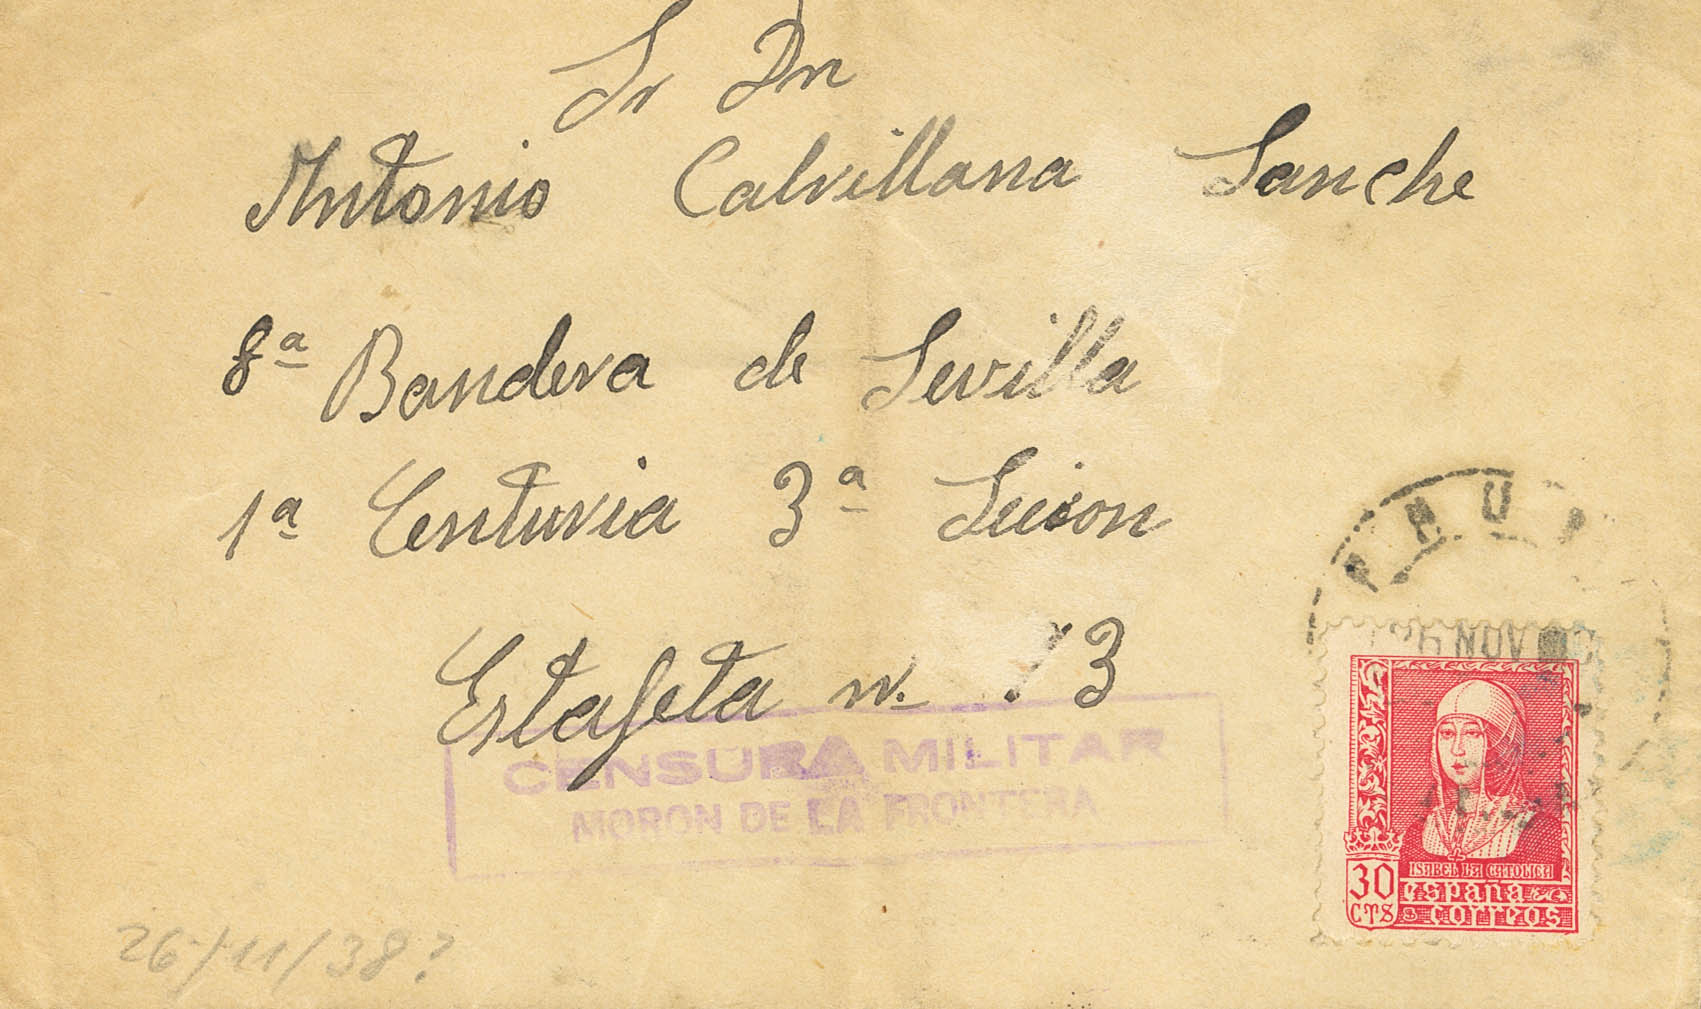 Sr Dn
Antonio Calvillana Sanche
8ª Bandera de Sevilla
1ª Centuria 3ª Seccion
Estafeta n. 13
CENSURA MILITAR
MORON DE LA FRONTERA
NOV
ISABEL LA CATOLICA
30 CTS
españa
correos
26/11/38?